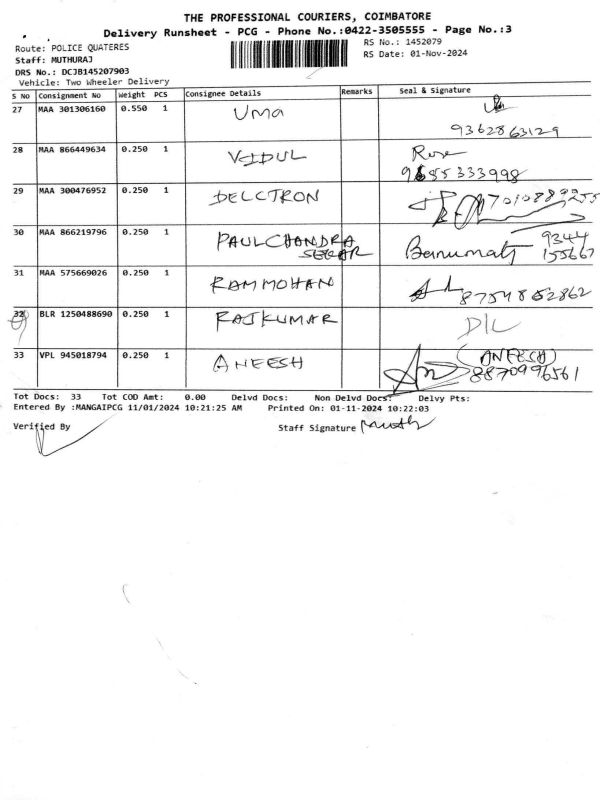 THE PROFESSIONAL COURIERS, COIMBATORE
Delivery Runsheet - PCG - Phone No.:0422-3505555 - Page No.:3
Route: POLICE QUATERES
RS No.: 1452079
Staff: MUTHURAJ
RS Date: 01-Nov-2024
DRS No.: DCJB145207903
Vehicle: Two Wheeler Delivery
S No Consignment No Weight PCS Consignee Details Remarks Seal & Signature
27 MAA 301306160 0.550 1 Uma
9362863129
28 MAA 866449634 0.250 1 VEIDUL Rose
9655333998
29 MAA 300476952 0.250 1 DELCTRON 7010889255
30 MAA 866219796 0.250 1 PAULCHANDRA SEKAR Banumati 9344 155667
31 MAA 575669026 0.250 1 RAMMOHAN 8754852862
32 BLR 1250488690 0.250 1 RAJKUMAR D/L
33 VPL 945018794 0.250 1 ANEESH (ANEESH)
8870996561
Tot Docs: 33 Tot COD Amt: 0.00 Delvd Docs: Non Delvd Docs: Delvy Pts:
Entered By :MANGAIPCG 11/01/2024 10:21:25 AM Printed On: 01-11-2024 10:22:03
Verified By
Staff Signature